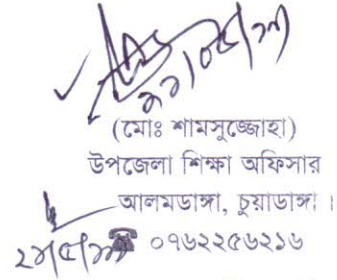 (মোঃ শামসুজ্জোহা)
উপজেলা শিক্ষা অফিসার
আলমডাঙ্গা, চুয়াডাঙ্গা ।
☎ ০৭৬২২৫৬২১৬